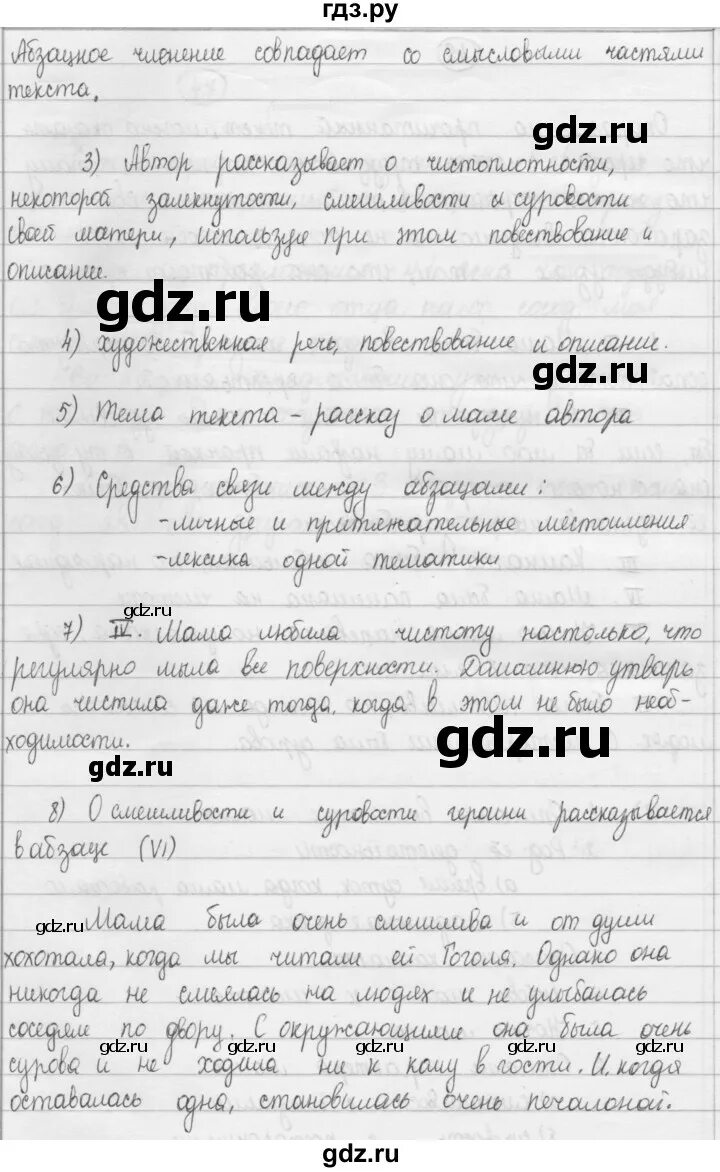 гдз.ру
Абзацное членение совпадает со смысловыми частями
текста.
gdz.ru
3) Автор рассказывает о чистоплотности,
некоторой замкнутости, смешливости и суровости
своей матери, используя при этом повествование и
описание.
gdz.ru
4) художественная речь, повествование и описание.
gdz.ru
5) Тема текста – рассказ о маме автора
6) Средства связи между абзацами:
-личные и притяжательные местоимения
-лексика одной тематики
gdz.ru
7) IV. Мама любила чистоту настолько, что
регулярно мыла все поверхности. Домашнюю утварь
она чистила даже тогда, когда в этом не было необ-
ходимости.
gdz.ru
gdz.ru
8) О смешливости и суровости героини рассказывается
в абзаце (VI)
gdz.ru
gdz.ru
Мама была очень смешлива и от души
хохотала, когда мы читали ей Гоголя. Однако она
никогда не смеялась на людях и не улыбалась
соседям по двору. С окружающими она была очень
gdz.ru
gdz.ru
gdz.ru
сурова и не ходила ни к кому в гости. И, когда
оставалась одна, становилась очень печальной.
gdz.ru